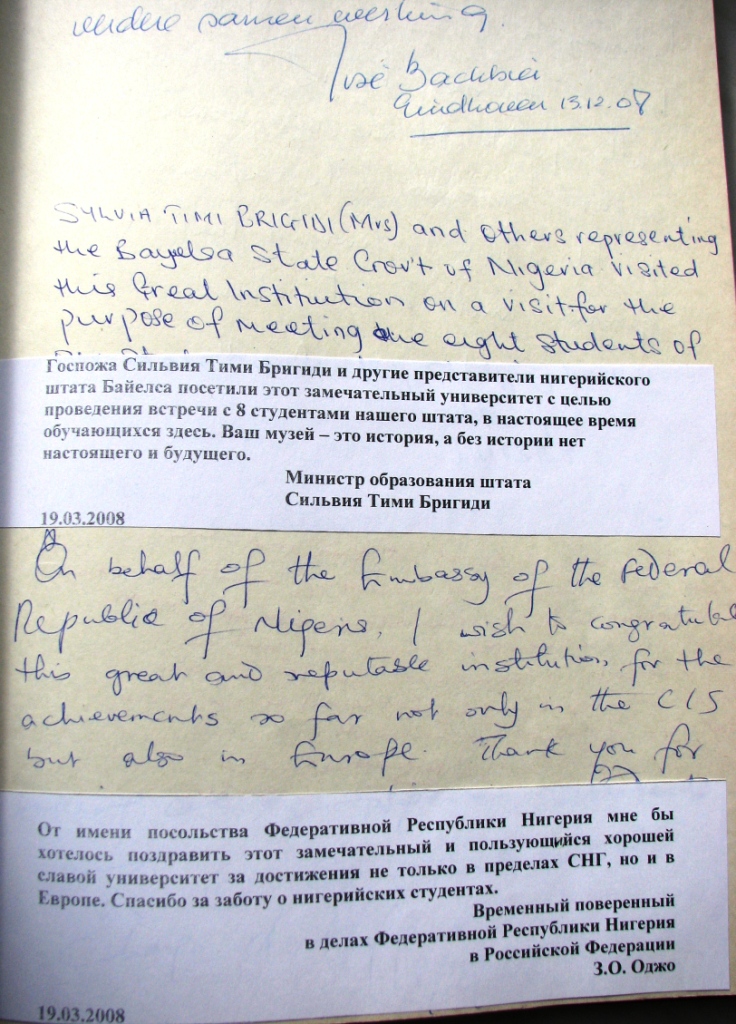 verdere samenwerking.
José
Eindhoven 13.12.07
SYLVIA TIMI BRIGIDI (Mrs) and others representing
the Bayelsa State Gov't of Nigeria visited
this Great Institution on a visit for the
purpose of meeting the eight students of
Госпожа Сильвия Тими Бригиди и другие представители нигерийского
штата Байелса посетили этот замечательный университет с целью
проведения встречи с 8 студентами нашего штата, в настоящее время
обучающихся здесь. Ваш музей – это история, а без истории нет
настоящего и будущего.
Министр образования штата
Сильвия Тими Бригиди
19.03.2008
On behalf of the Embassy of the Federal
Republic of Nigeria, I wish to congratulate
this great and reputable institution for the
achievements so far not only in the CIS
but also in Europe. Thank you for
От имени посольства Федеративной Республики Нигерия мне бы
хотелось поздравить этот замечательный и пользующийся хорошей
славой университет за достижения не только в пределах СНГ, но и в
Европе. Спасибо за заботу о нигерийских студентах.
Временный поверенный
в делах Федеративной Республики Нигерия
в Российской Федерации
З.О. Оджо
19.03.2008